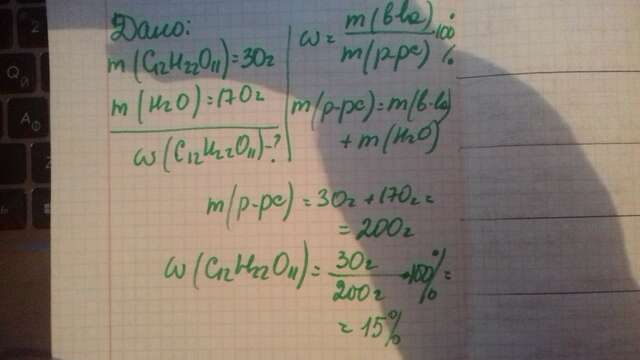 Дано:
m(C₁₂H₂₂O₁₁)=30г
m(H₂O)=170г
ω(C₁₂H₂₂O₁₁)-?
ω= m(в-ва) / m(р-ра) ·100%
m(р-ра)=m(в-ва)
+ m(H₂O)
m(р-ра) = 30г + 170г =
= 200г
ω(C₁₂H₂₂O₁₁) = 30г / 200г · 100% =
= 15%
2
Q
Й
A